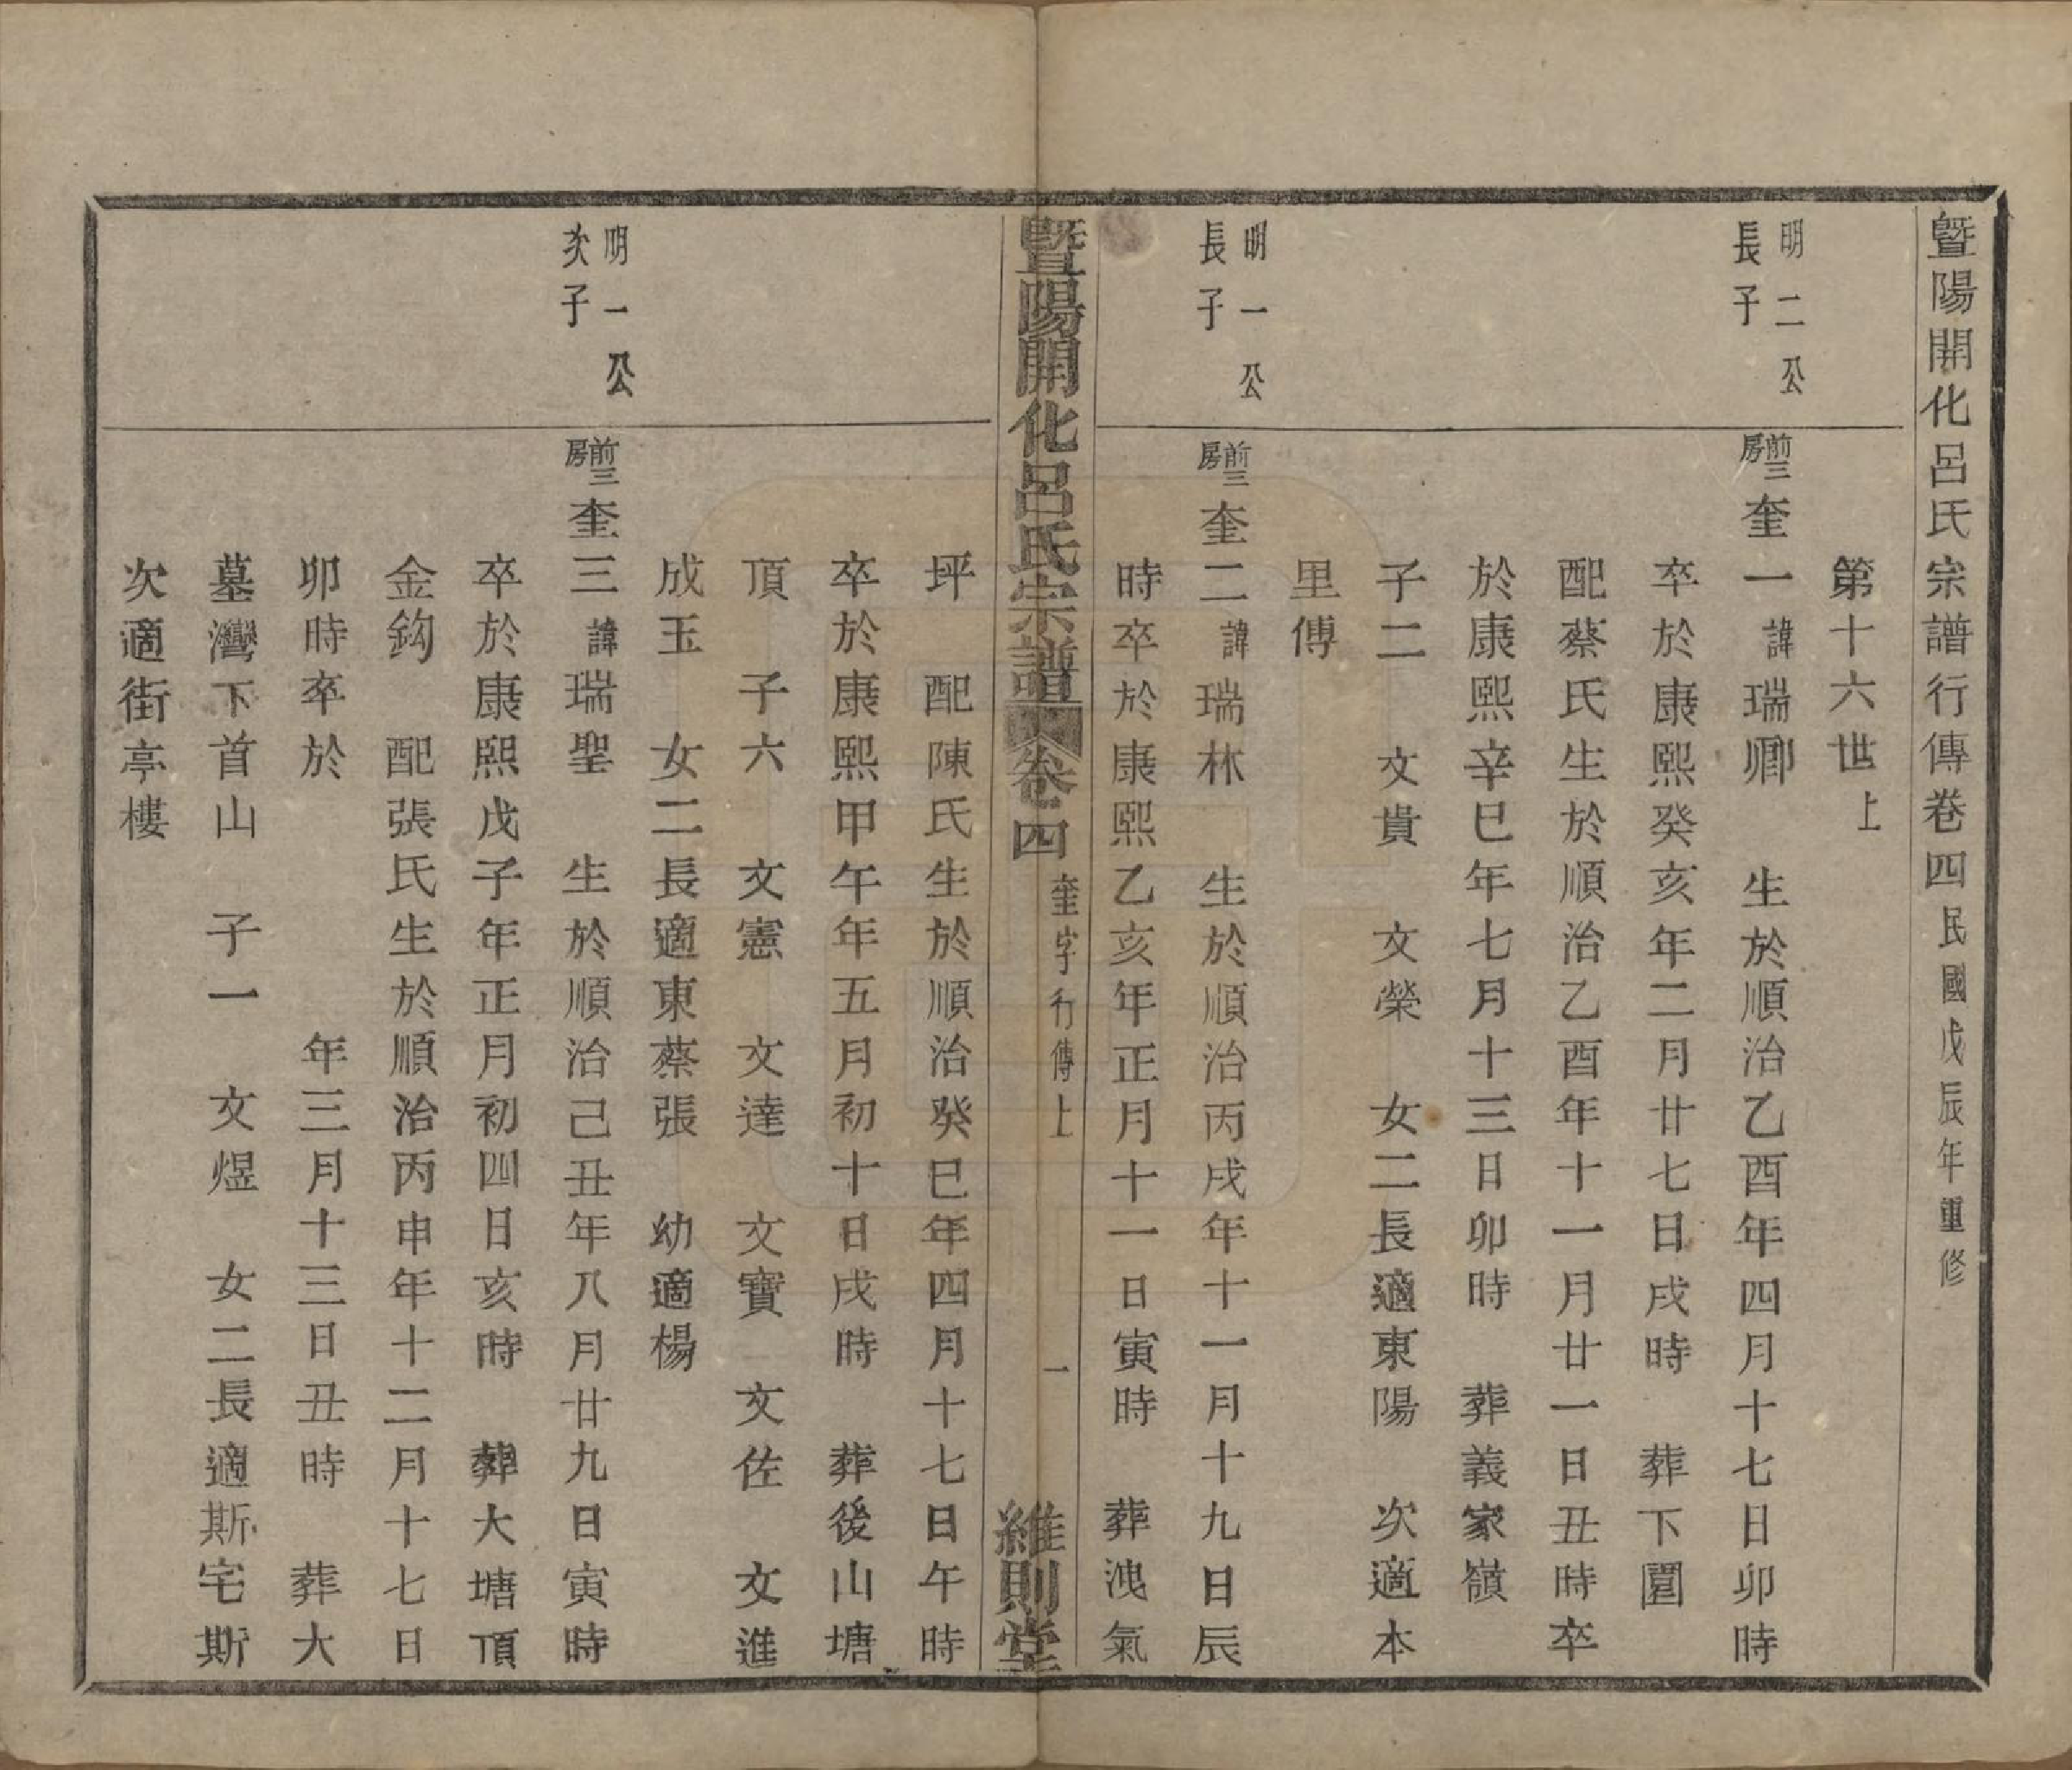 暨陽開化呂氏宗譜行傳卷四民國戊辰年重修
第十六世上
明二公
長子
前三房奎一諱瑞卿　生於順治乙酉年四月十七日卯時
卒於康熙癸亥年二月廿七日戌時　葬下園
配蔡氏生於順治乙酉年十一月廿一日丑時卒
於康熙辛巳年七月十三日卯時　葬義家嶺
子二　文貴　文榮　女二長適東陽　次適本
里傅
明一公
長子
前三房奎二諱瑞林　生於順治丙戌年十一月十九日辰
時卒於康熙乙亥年正月十一日寅時　葬洩氣
暨陽開化呂氏宗譜　卷四　奎字行傳上　一　維則堂
坪　配陳氏生於順治癸巳年四月十七日午時
卒於康熙甲午年五月初十日戌時　葬後山塘
頂　子六　文憲　文達　文寶　文佐　文進
成玉　女二長適東蔡張　幼適楊
明一公
次子
前三房奎三諱瑞聖　生於順治己丑年八月廿九日寅時
卒於康熙戊子年正月初四日亥時　葬大塘頂
金鈎　配張氏生於順治丙申年十二月十七日
卯時卒於　年三月十三日丑時　葬大
墓灣下首山　子一　文煜　女二長適斯宅斯
次適街亭樓